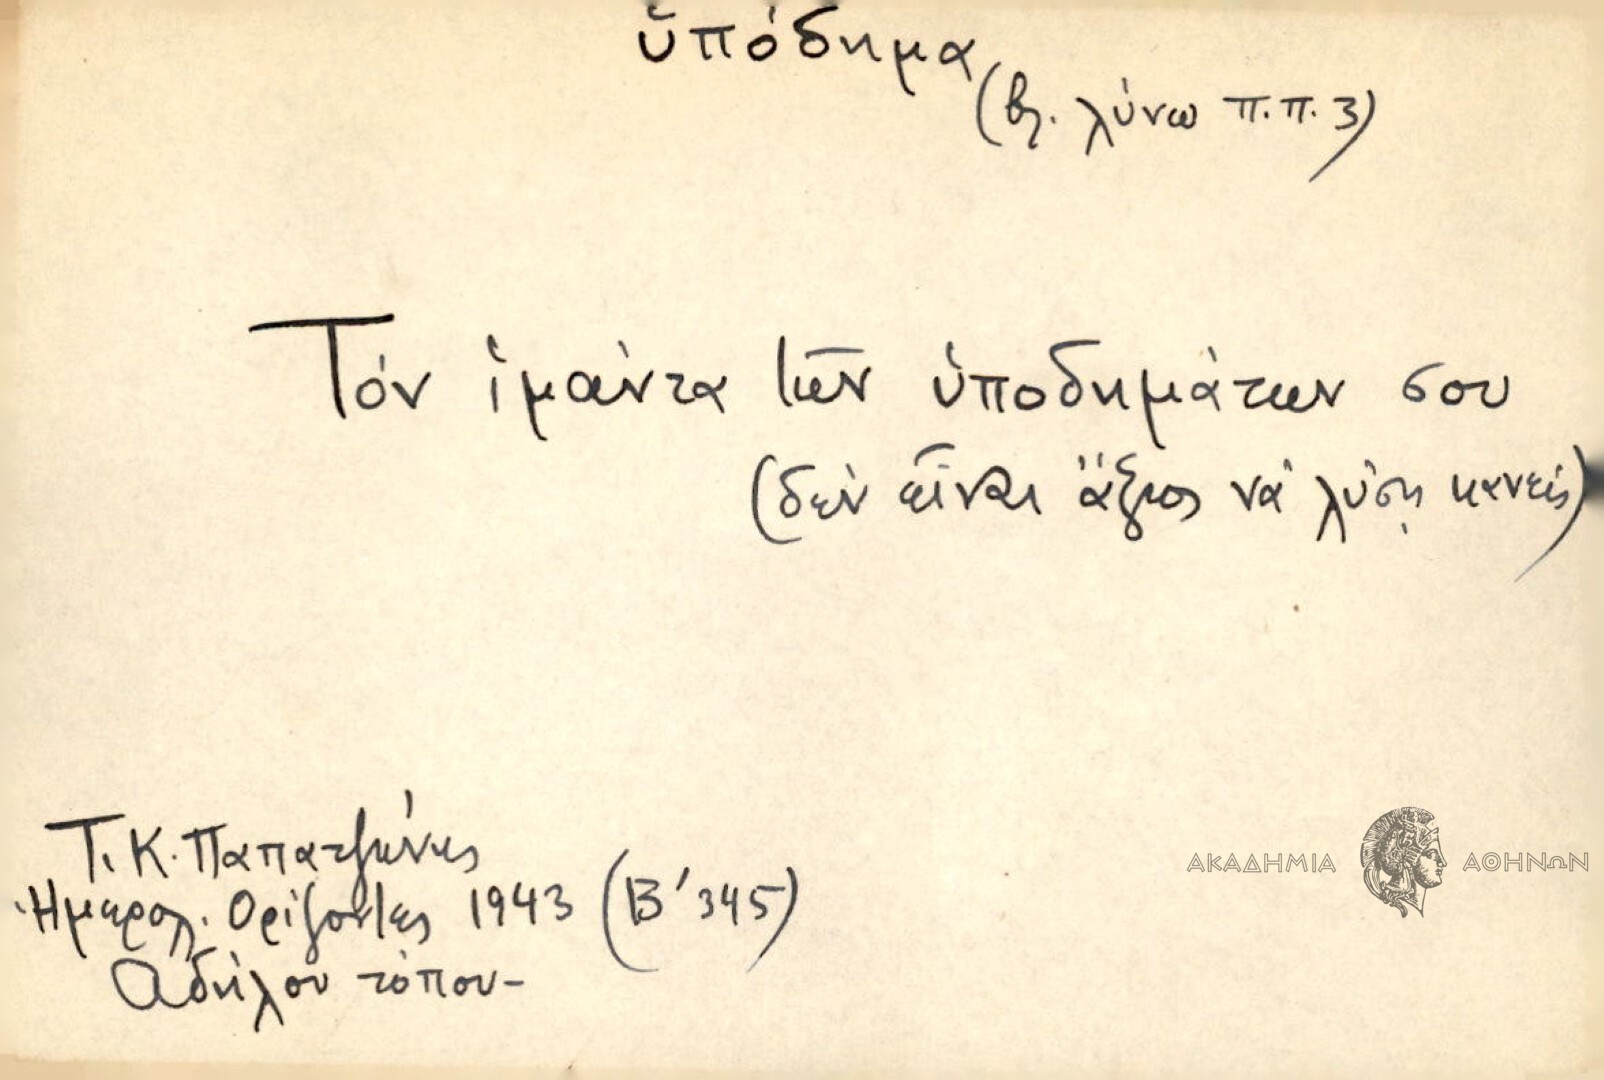 ὑπόδημα
(βλ. λύνω π.π. 3)
Τὸν ἱμάντα τῶν ὑποδημάτων σου
(δὲν εἶναι ἄξιος νὰ λύσῃ κανείς)
Τ. Κ. Παπατζώνης
Ἡμερολ. Ορίζοντες 1943 (Β' 345)
Αδήλου τόπου-
ΑΚΑΔΗΜΙΑ ΑΘΗΝΩΝ